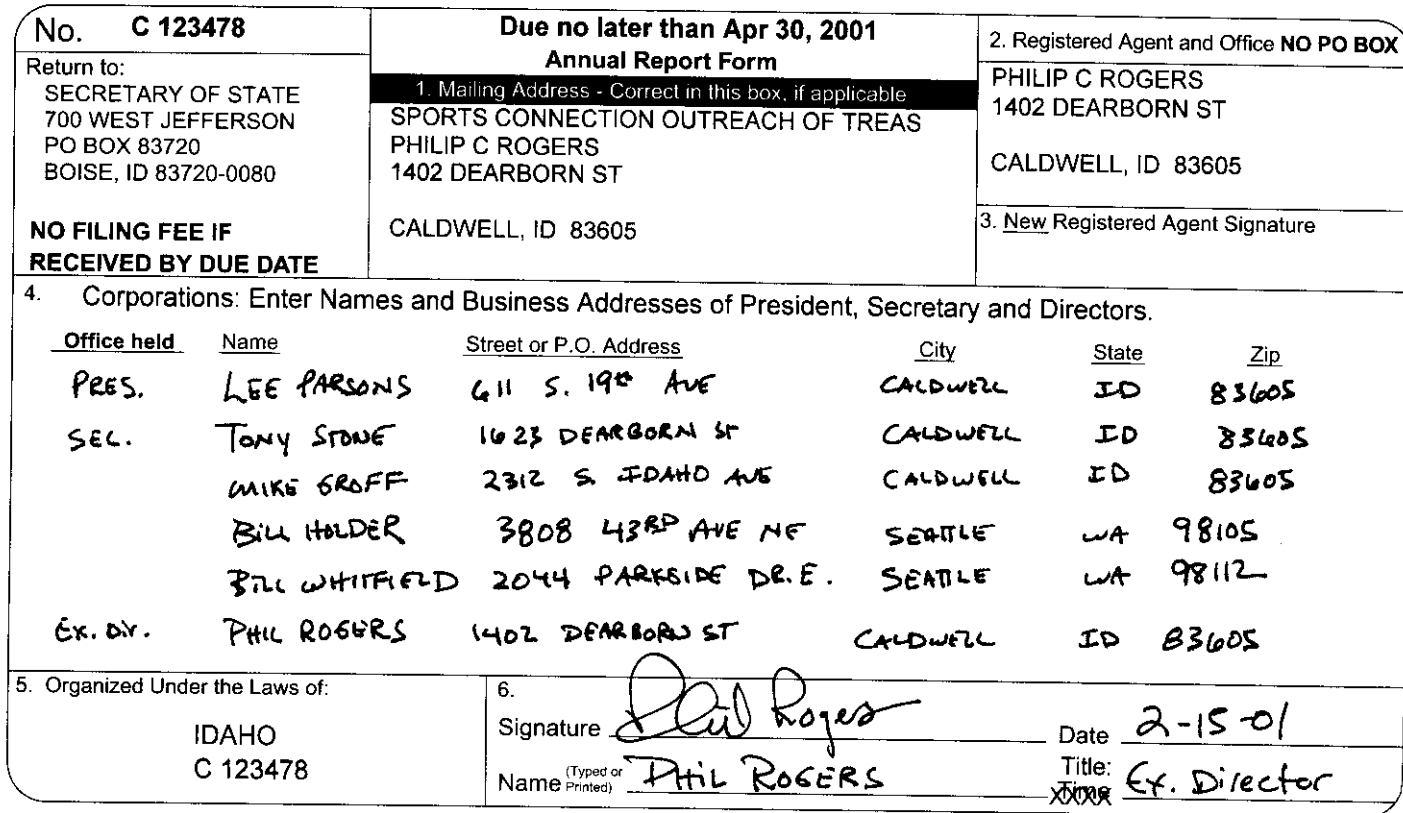 No. C 123478
Return to:
SECRETARY OF STATE
700 WEST JEFFERSON
PO BOX 83720
BOISE, ID 83720-0080
NO FILING FEE IF
RECEIVED BY DUE DATE
Due no later than Apr 30, 2001
Annual Report Form
1. Mailing Address - Correct in this box, if applicable
SPORTS CONNECTION OUTREACH OF TREAS
PHILIP C ROGERS
1402 DEARBORN ST
CALDWELL, ID 83605
2. Registered Agent and Office NO PO BOX
PHILIP C ROGERS
1402 DEARBORN ST
CALDWELL, ID 83605
3. New Registered Agent Signature
4. Corporations: Enter Names and Business Addresses of President, Secretary and Directors.
Office held Name Street or P.O. Address City State Zip
PRES. LEE PARSONS 611 S. 19th AVE CALDWELL ID 83605
SEC. TONY STONE 1623 DEARBORN ST CALDWELL ID 83605
MIKE GROFF 2312 S. IDAHO AVE CALDWELL ID 83605
BILL HOLDER 3808 43RD AVE NE SEATTLE WA 98105
BILL WHITFIELD 2044 PARKSIDE DR. E. SEATTLE WA 98112
Ex. Dir. PHIL ROGERS 1402 DEARBORN ST CALDWELL ID 83605
5. Organized Under the Laws of:
IDAHO
C 123478
6.
Signature Phil Rogers Date 2-15-01
Name (Typed or Printed) PHIL ROGERS Title: Ex. Director